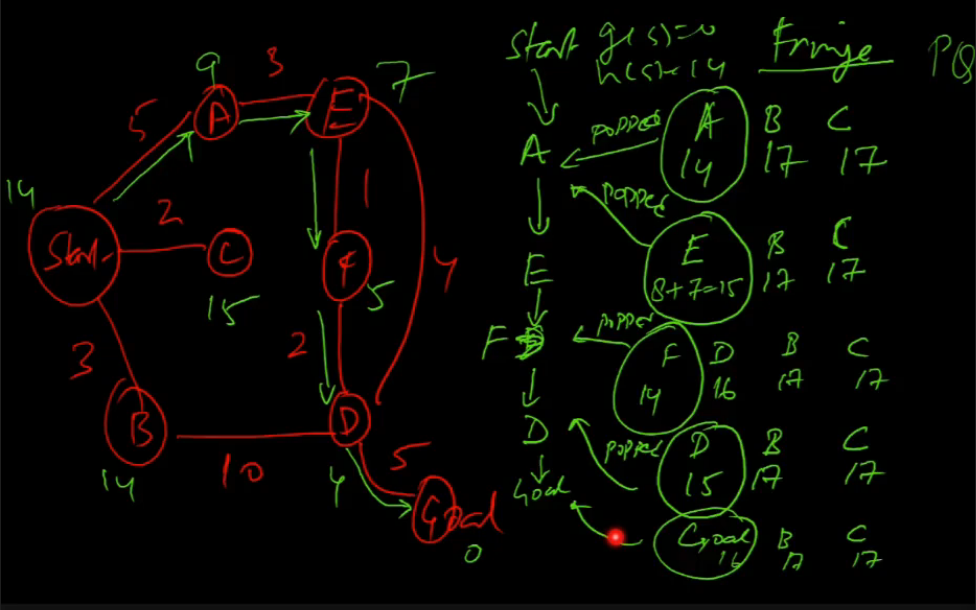 Start g(s)=0 Fringe PQ
h(s)=14
9
3
7
A
E
5
A popped A B C
14 17 17
14
2
1
popped
Start
C
F
4
E
E B C
8+7=15 17 17
15
5
3
2
F popped F D B C
14 16 17 17
B
D
D popped D B C
15 17 17
14
10
4
5
Goal
Goal
0
Goal B C
16 17 17